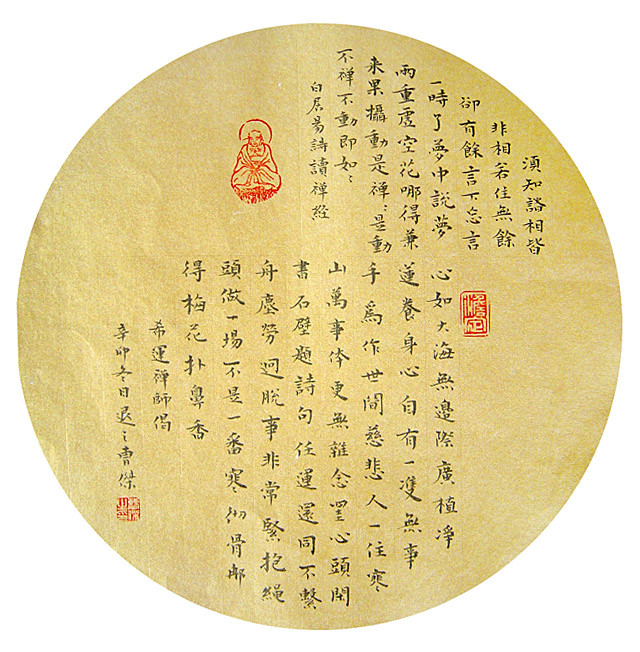 須知諸相皆
非相若住無餘
卻有餘言下忘言
一時了夢中説夢
兩重虛空花哪得兼
来果攝動是禅:是動
不禅不動即如:
白居易詩讀禅經
心如大海無邊際廣植净
蓮養身心自有一隻無事
手爲作世間慈悲人一住寒
山萬事休更無雜念罣心頭閑
書石壁題詩句任運還同不繫
舟塵勞迥脫事非常緊抱繩
頭做一場不是一番寒彻骨那
得梅花扑鼻香
希運禅師偈
辛卯冬日退之曹傑